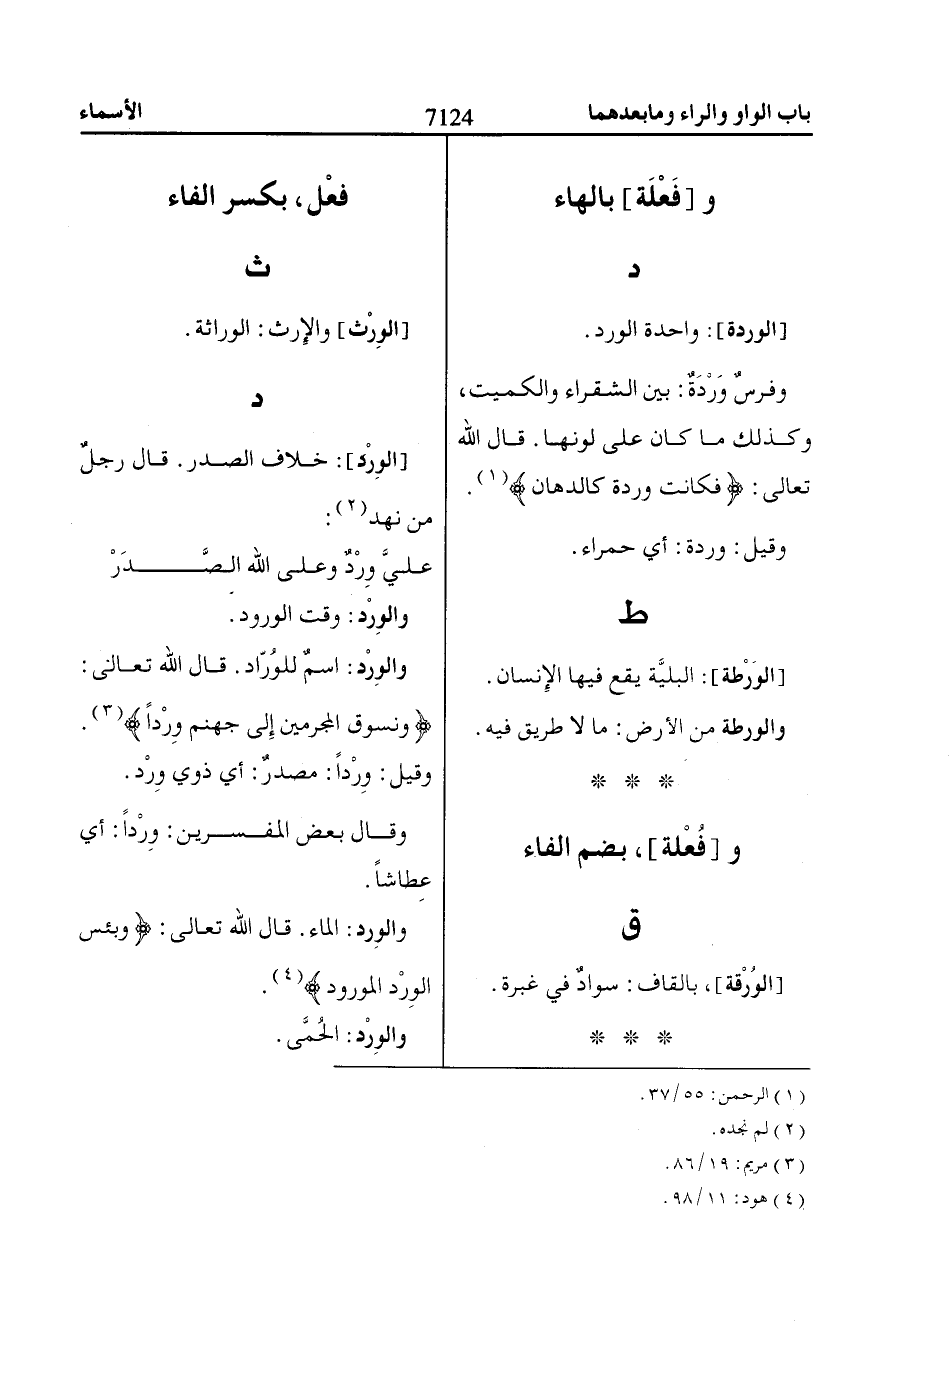 باب الواو والراء ومابعدهما
7124
الأسماء
و [فَعْلَة] بالهاء
د
[الوردة]: واحدة الورد.
وفرسٌ وَرْدَةٌ: بين الشقراء والكميت،
وكذلك ما كان على لونها. قال الله
تعالى: ﴿ فكانت وردة كالدهان ﴾(١).
وقيل: وردة: أي حمراء.
ط
[الوَرْطة]: البليَّة يقع فيها الإنسان.
والورطة من الأرض: ما لا طريق فيه.
* * *
و [فُعْلة]، بضم الفاء
ق
[الوُرْقة]، بالقاف: سوادٌ في غبرة.
* * *
فعْل، بكسر الفاء
ث
[الوِرْث] والإرث: الوراثة.
د
[الوِرْد]: خلاف الصدر. قال رجلٌ
من نهد(٢):
عليَّ وِرْدٌ وعلى الله الصَّدَرْ
والوِرْد: وقت الورود.
والوِرْد: اسمٌ للوُرّاد. قال الله تعالى:
﴿ ونسوق المجرمين إلى جهنم وِرْداً ﴾(٣).
وقيل: وِرْداً: مصدرٌ: أي ذوي وِرْد.
وقال بعض المفسرين: وِرْداً: أي
عِطاشاً.
والوِرد: الماء. قال الله تعالى: ﴿ وبئس
الوِرْد المورود ﴾(٤).
والوِرْد: الحُمَّى.
(١) الرحمن: ٥٥/ ٣٧.
(٢) لم نجده.
(٣) مريم: ١٩/ ٨٦.
(٤) هود: ١١/ ٩٨.